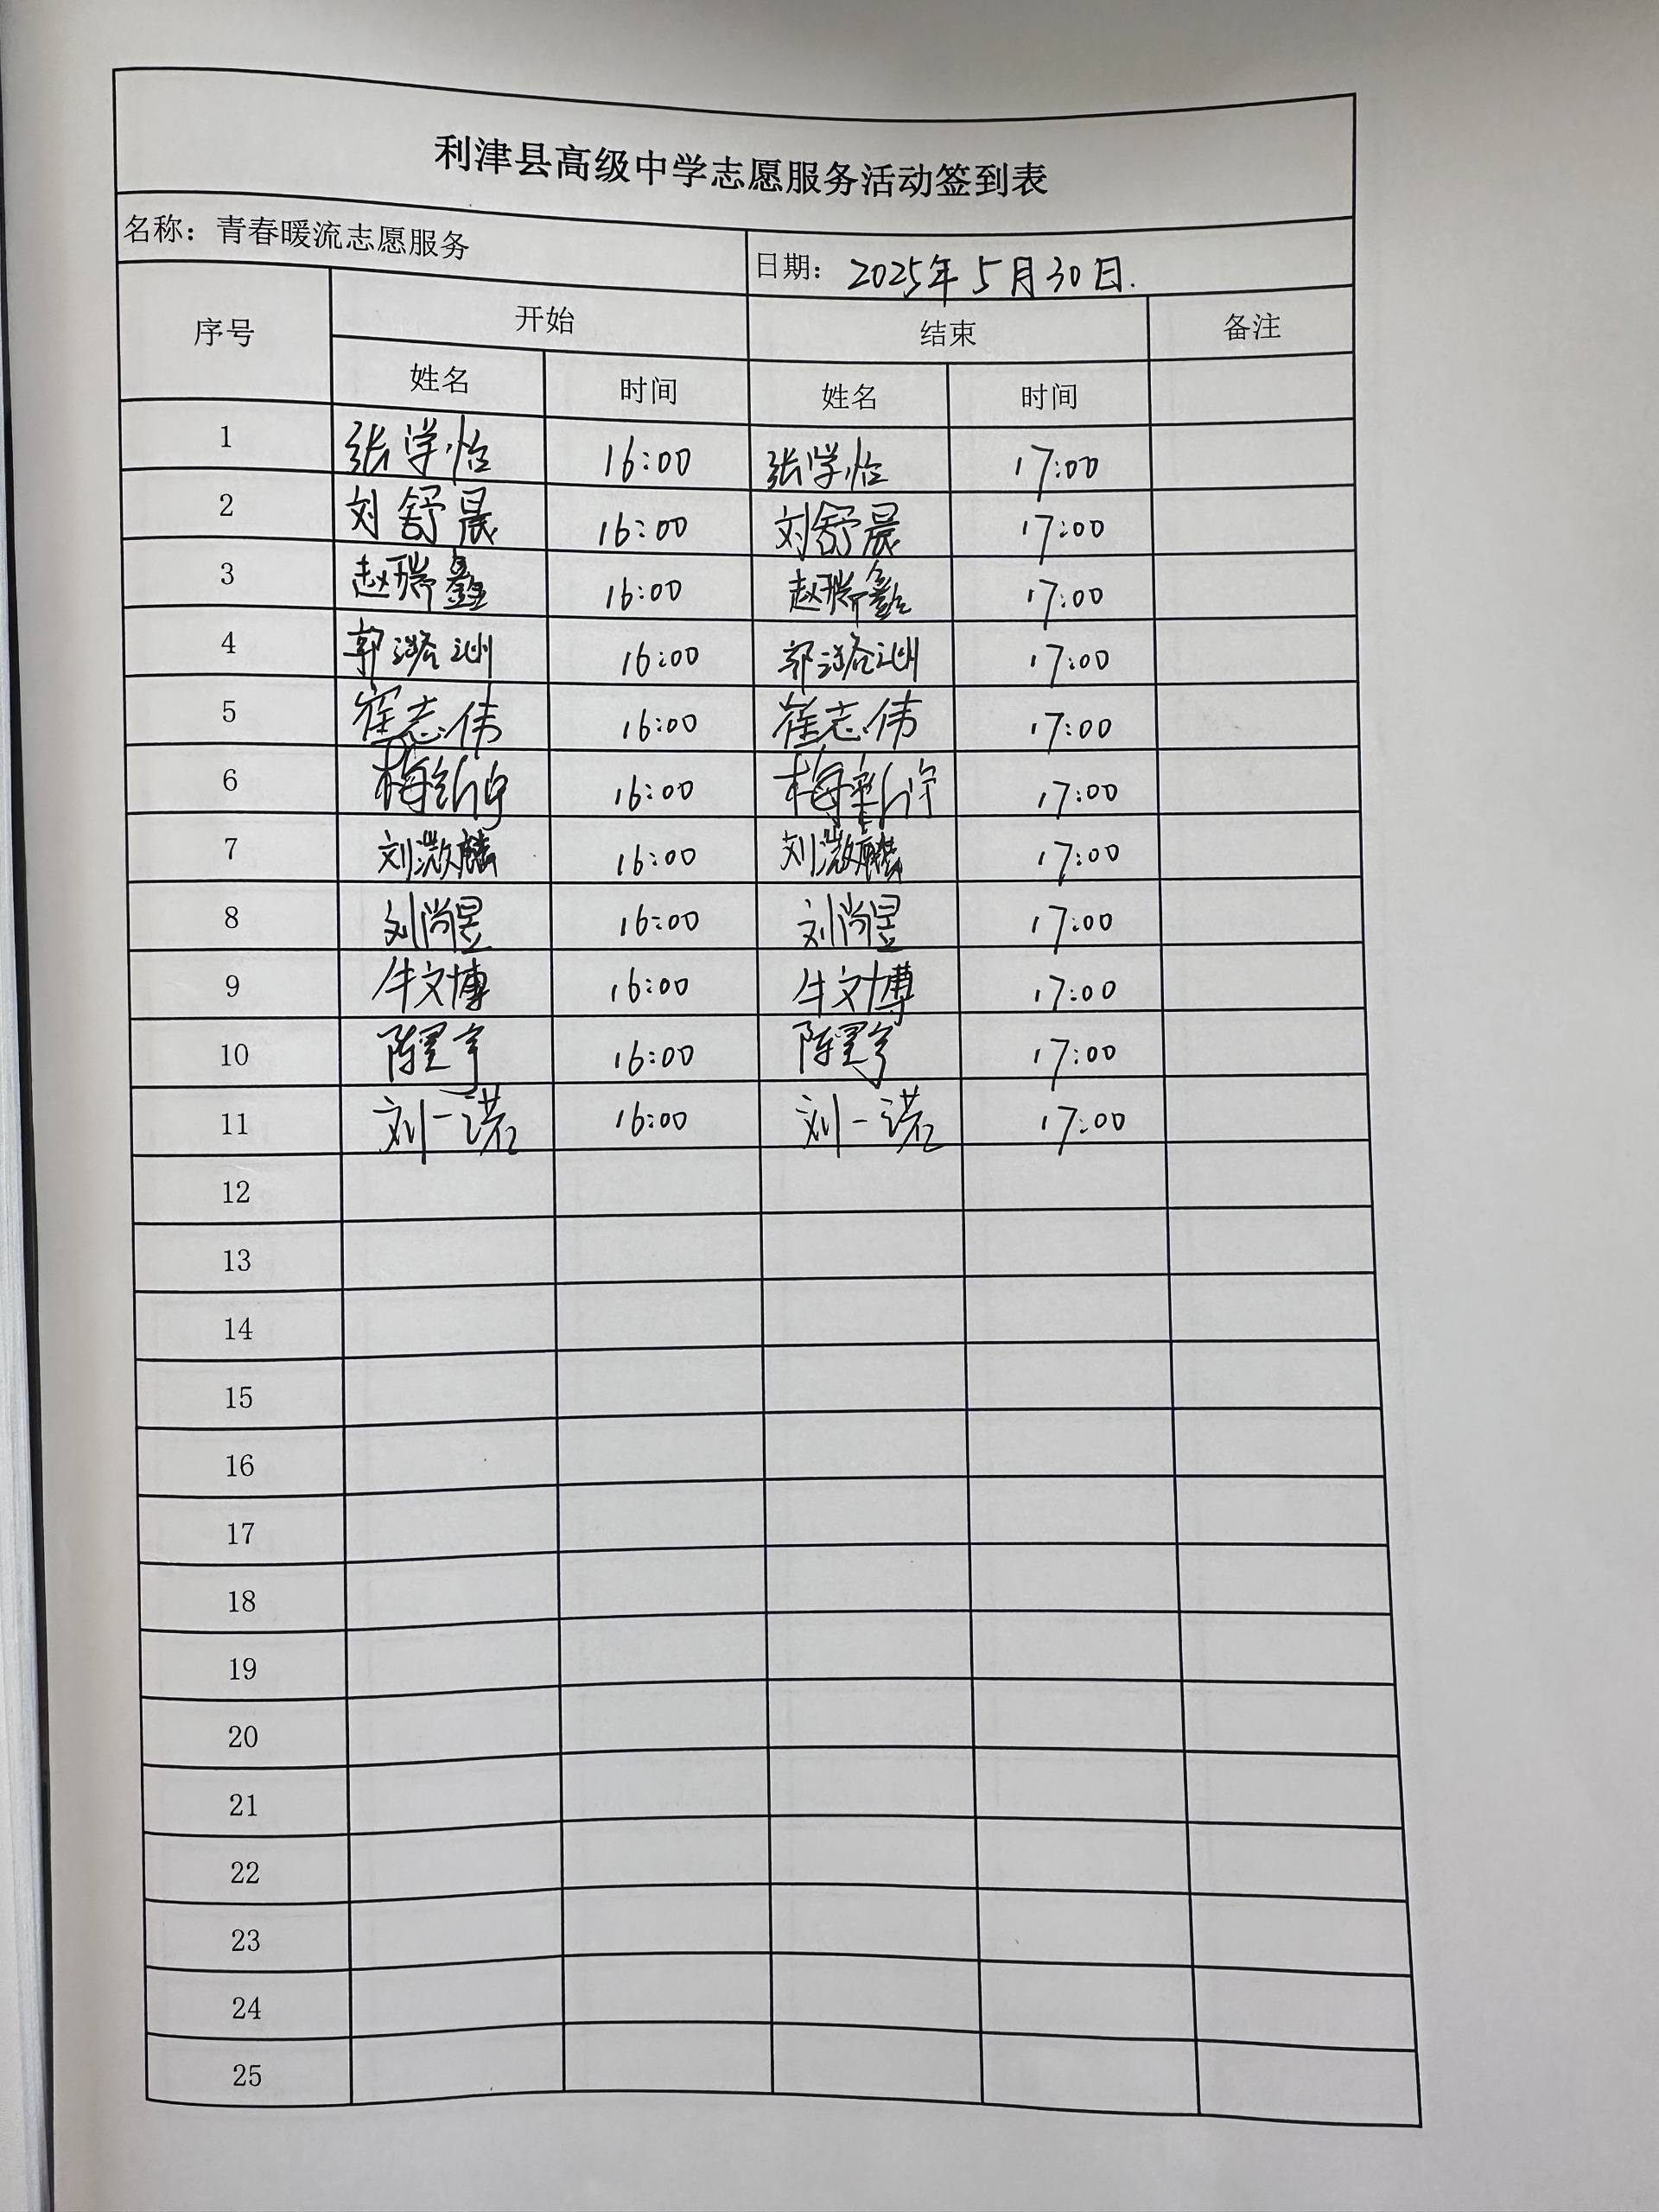 利津县高级中学志愿服务活动签到表
名称：青春暖流志愿服务 日期：2025年5月30日.
序号 开始 结束 备注
姓名 时间 姓名 时间
1 张学怡 16:00 张学怡 17:00
2 刘舒晨 16:00 刘舒晨 17:00
3 赵瑞鑫 16:00 赵瑞鑫 17:00
4 郭洲 16:00 郭洲 17:00
5 崔志伟 16:00 崔志伟 17:00
6 梅新宇 16:00 梅新宇 17:00
7 刘 16:00 刘 17:00
8 刘尚昱 16:00 刘尚昱 17:00
9 牛文博 16:00 牛文博 17:00
10 陈星宇 16:00 陈星宇 17:00
11 刘一诺 16:00 刘一诺 17:00
12
13
14
15
16
17
18
19
20
21
22
23
24
25